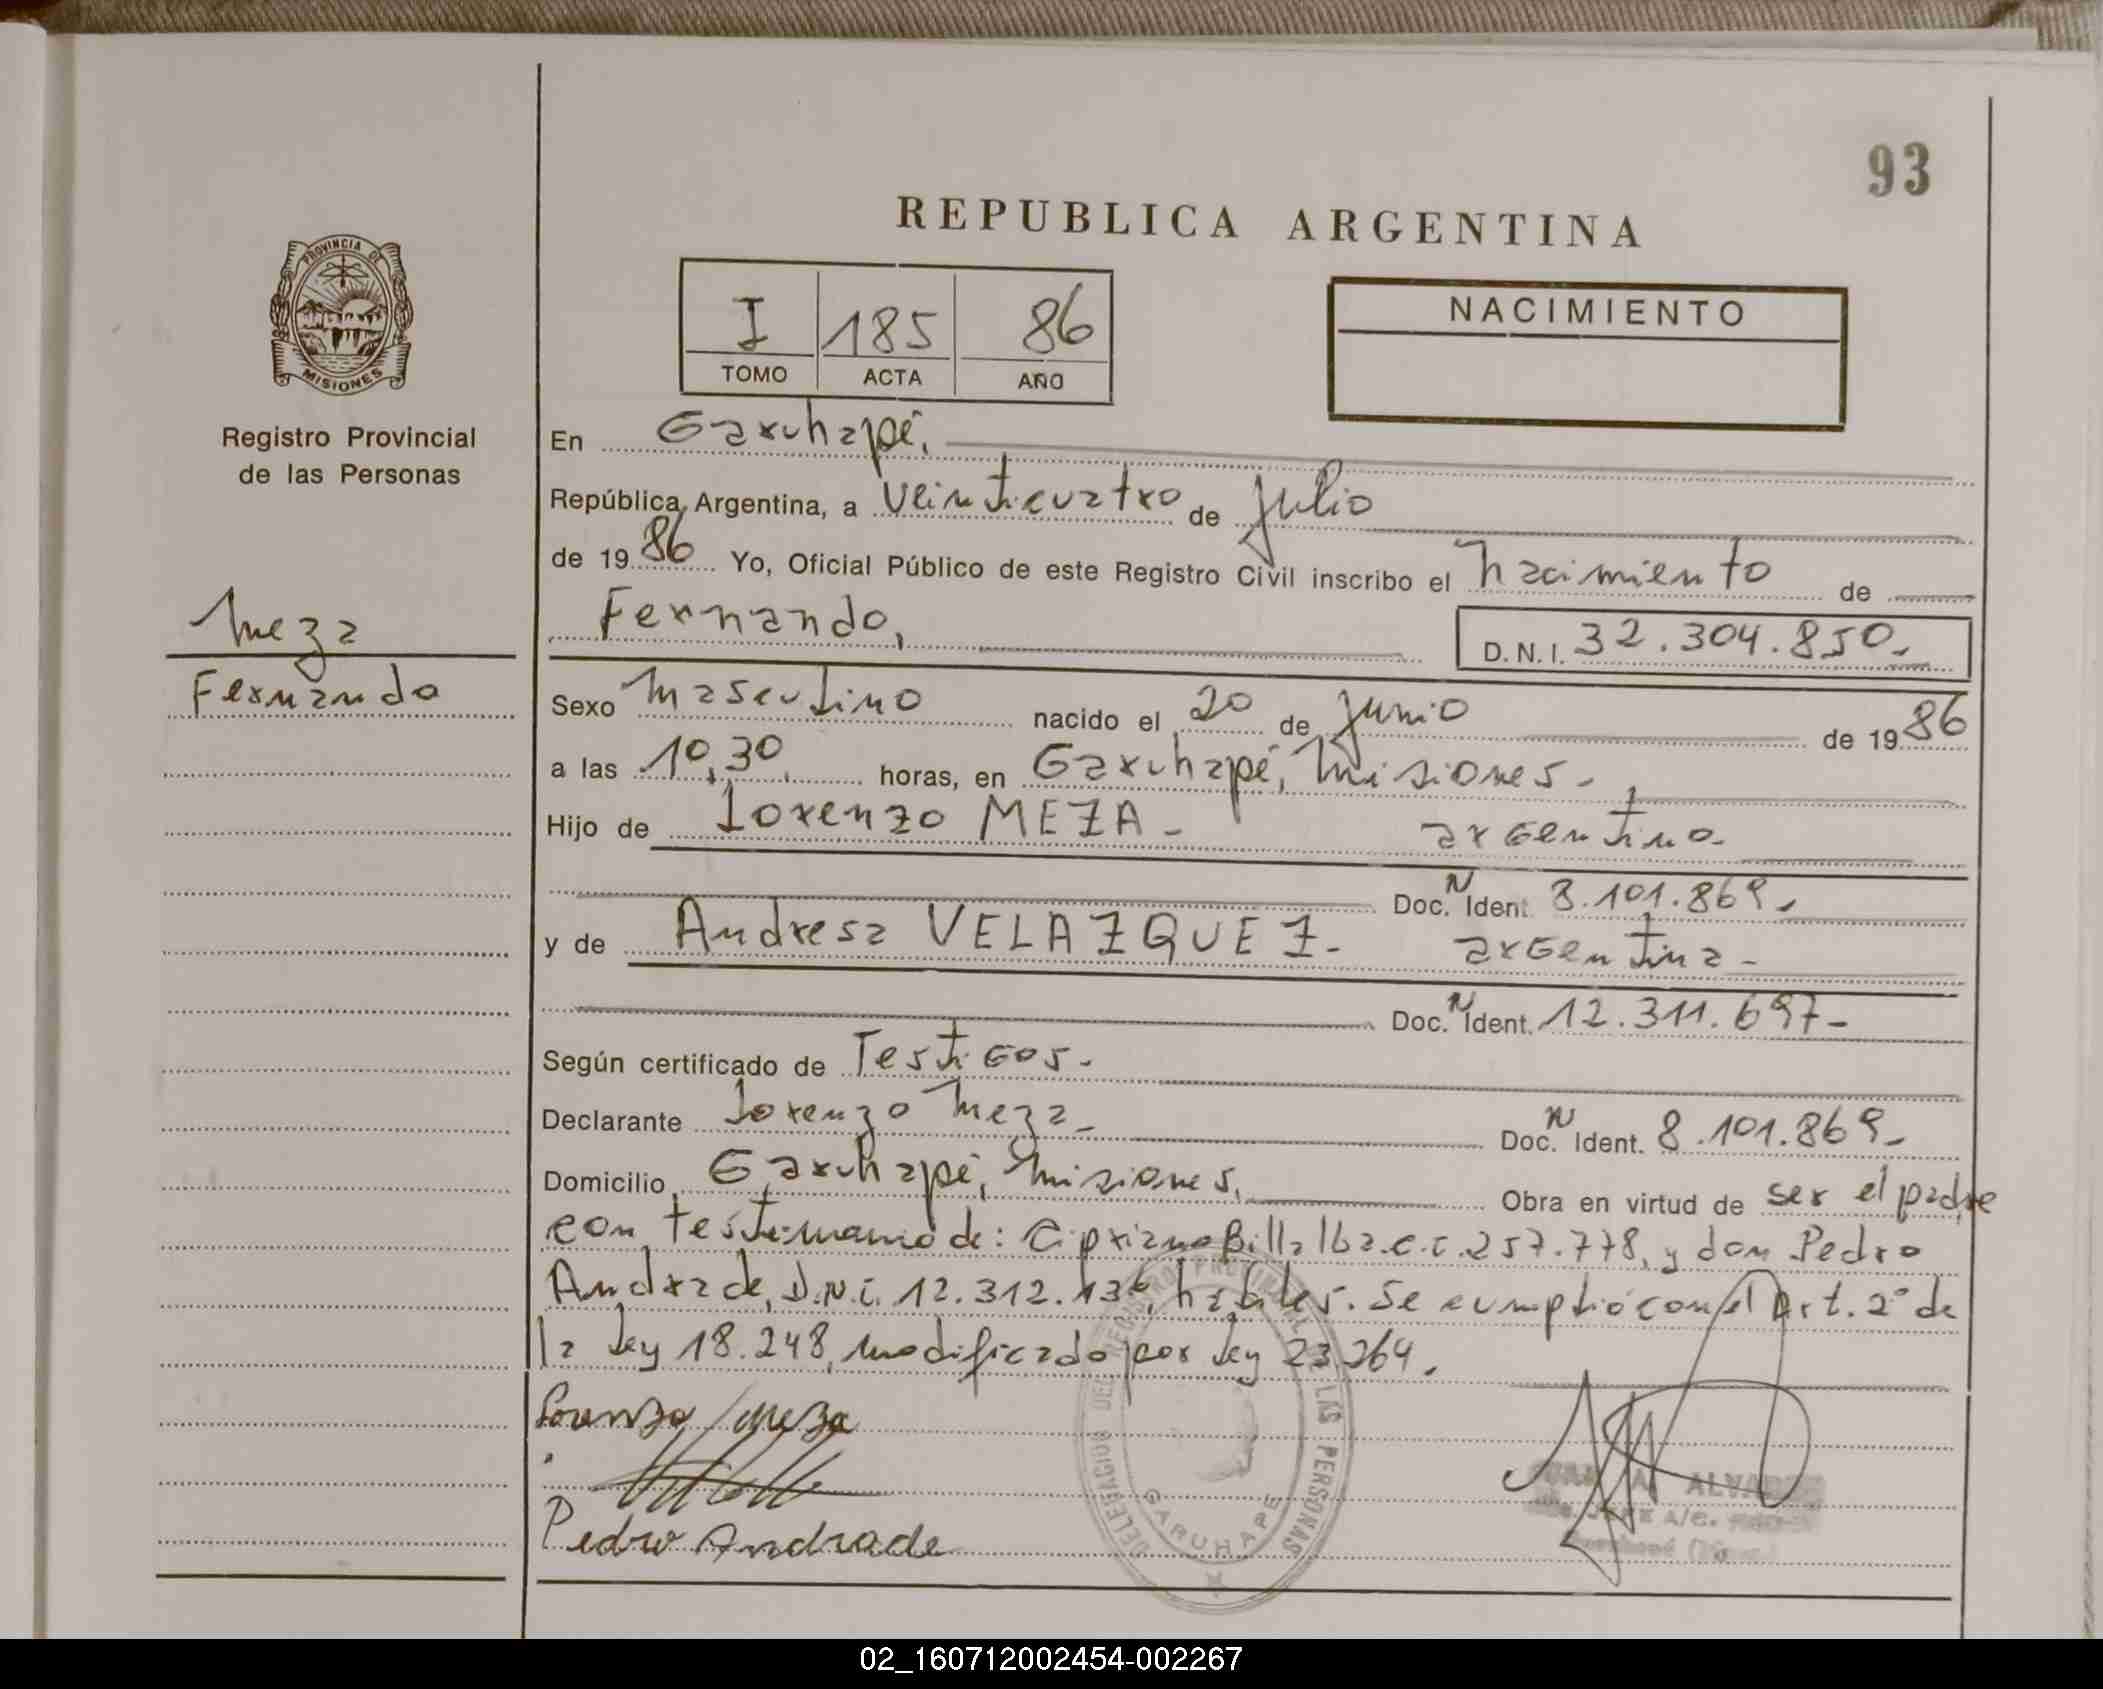 93
REPUBLICA ARGENTINA
PROVINCIA DE
MISIONES
I 185 86
TOMO ACTA AÑO
NACIMIENTO
Registro Provincial
de las Personas
En Garuhapé,
República Argentina, a veinticuatro de Julio
de 1986 Yo, Oficial Público de este Registro Civil inscribo el nacimiento de
Meza
Fernando
Fernando,
D.N.I. 32.304.850.-
Sexo masculino nacido el 20 de Junio de 1986
a las 10,30 horas, en Garuhapé, Misiones.-
Hijo de Lorenzo MEZA- argentino-
Doc. N Ident. 8.101.869.-
y de Andresa VELAZQUEZ- argentina-
Doc. N Ident. 12.311.697-
Según certificado de Testigos-
Declarante Lorenzo Meza- Doc. N Ident. 8.101.869-
Domicilio Garuhapé, Misiones, Obra en virtud de ser el padre
con testimonio de: Cipriano Billalba.c.i.257.778, y don Pedro
Andrade, D.N.i. 12.312. hábiles. Se cumplió con el Art. 2° de
la Ley 18.248, modificado por Ley 23.264.
Lorenzo Meza
Pedro Andrade
DELEGACION DEL REGISTRO PROVINCIAL DE LAS PERSONAS
GARUHAPE
A. ALVAREZ
JEFE A/C.
02_160712002454-002267